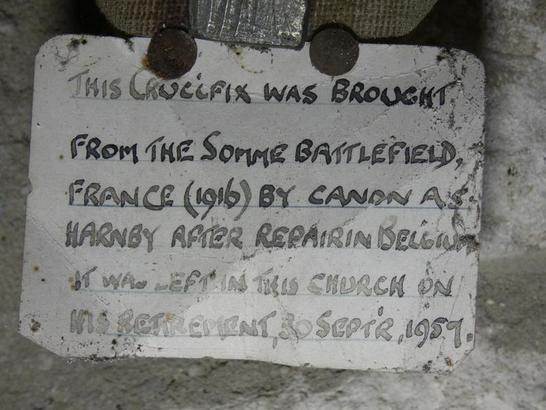 THIS CRUCIFIX WAS BROUGHT
FROM THE SOMME BATTLEFIELD,
FRANCE (1916) BY CANON A.S.
HARNBY AFTER REPAIR IN BELGIUM
IT WAS LEFT IN THIS CHURCH ON
HIS RETIREMENT, 30 SEPT'R, 1957.